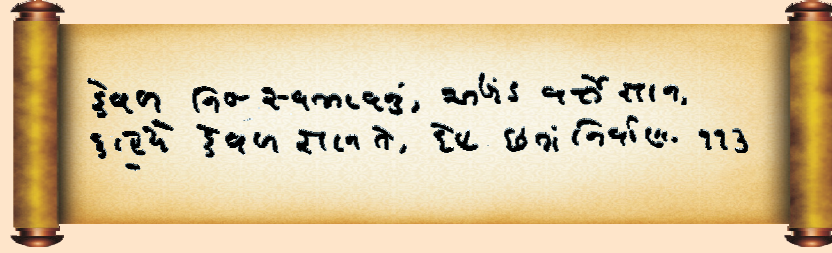 કેવળ નિજ સ્વભાવનું, અખંડ વર્તે જ્ઞાન,
કહીએ કેવળ જ્ઞાન તે, દેહ છતાં નિર્વાણ. ૧૧૩